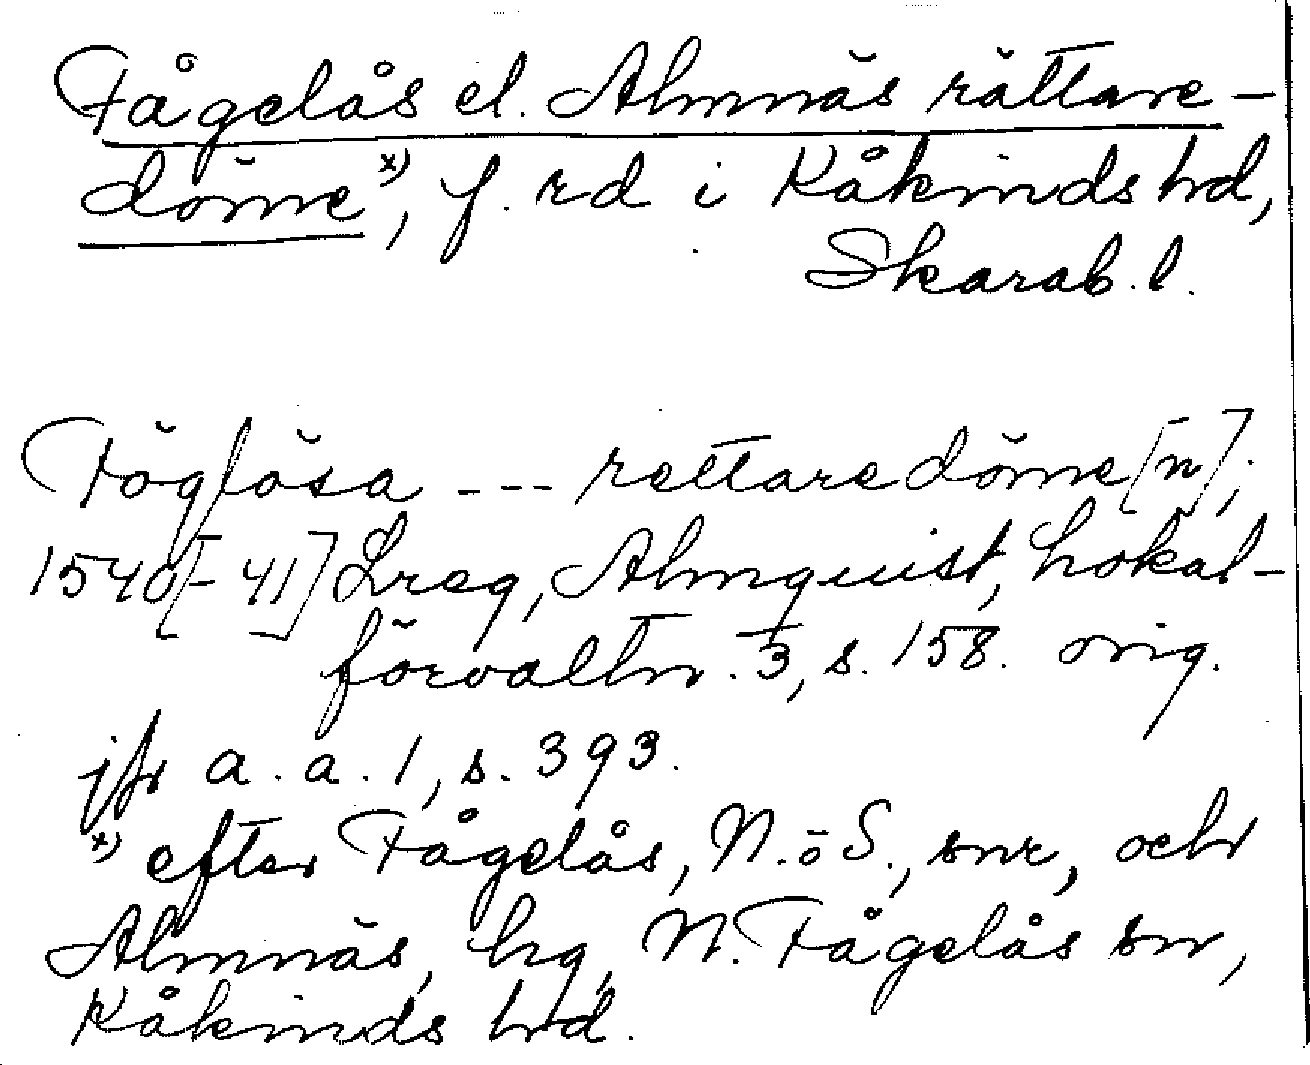 Fågelås el. Almnäs rättare-
döme x), f. rd i Kåkinds hd,
Skarab. l.
Föglösa --- rettaredöme[n];
1540[-41] Lreg, Almquist, Lokal-
förvaltn. 3, s. 158. orig.
jfr a. a. 1, s. 393.
x) efter Fågelås, N. o S., snr, och
Almnäs, hg, N. Fågelås sn,
Kåkinds hd.